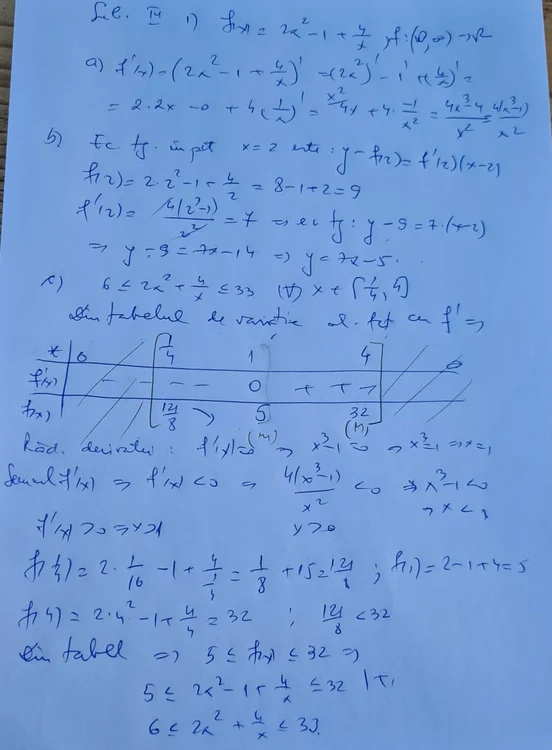 Sub. III 1) f(x) = 2x² - 1 + 4/x, f:(0,∞) → R
a) f'(x) = (2x² - 1 + 4/x)' = (2x²)' - 1' + (4/x)' =
= 2·2x - 0 + 4(1/x)' = x²/4x + 4·-1/x² = 4x³-4/x² = 4(x³-1)/x²
b) Ec. tg. în pct x=2 este: y - f(2) = f'(2)(x-2)
f(2) = 2·2² - 1 + 4/2 = 8-1+2 = 9
f'(2) = 4(2³-1)/2² = 7 ⇒ ec tg: y - 9 = 7·(x-2)
⇒ y - 9 = 7x - 14 ⇒ y = 7x - 5.
c) 6 ≤ 2x² + 4/x ≤ 33 (∀) x ∈ [1/4, 4]
Din tabelul de variație al fct cu f' ⇒
x 0 1/4 1 4 ∞
f'(x) - - - - 0 + + +
f(x) 121/8 ↘ 5 (m) 32 (M)
Răd. derivatei: f'(x)=0 ⇒ x³-1=0 ⇒ x³=1 ⇒ x=1
Semnul f'(x) ⇒ f'(x) < 0 ⇒ 4(x³-1)/x² < 0 ⇒ x³-1 < 0
⇒ x < 1
f'(x) > 0 ⇒ x > 1 x > 0
f(1/4) = 2·1/16 - 1 + 4/(1/4) = 1/8 + 15 = 121/8 ; f(1) = 2-1+4 = 5
f(4) = 2·4² - 1 + 4/4 = 32 ; 121/8 < 32
Din tabel ⇒ 5 ≤ f(x) ≤ 32 ⇒
5 ≤ 2x² - 1 + 4/x ≤ 32 |+1
6 ≤ 2x² + 4/x ≤ 33.